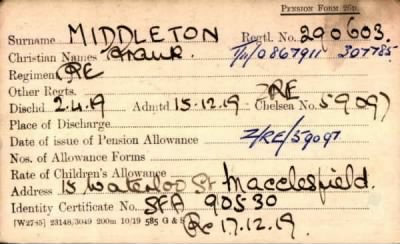 PENSION FORM 26D.
Surname MIDDLETON Regtl. No. 290603.
Christian Names Frank. T/M/0867911 307785
Regiment RE
Other Regts. RE
Dischd 2.4.19 Admtd 15.12.19 Chelsea No. 59097
Place of Discharge
Date of issue of Pension Allowance Z/RE/59097
Nos. of Allowance Forms
Rate of Children's Allowance
Address 15 Waterloo St Macclesfield.
Identity Certificate No. SFA 90530
[W2785] 23148/3049 200m 10/19 585 G & S 17.12.19.